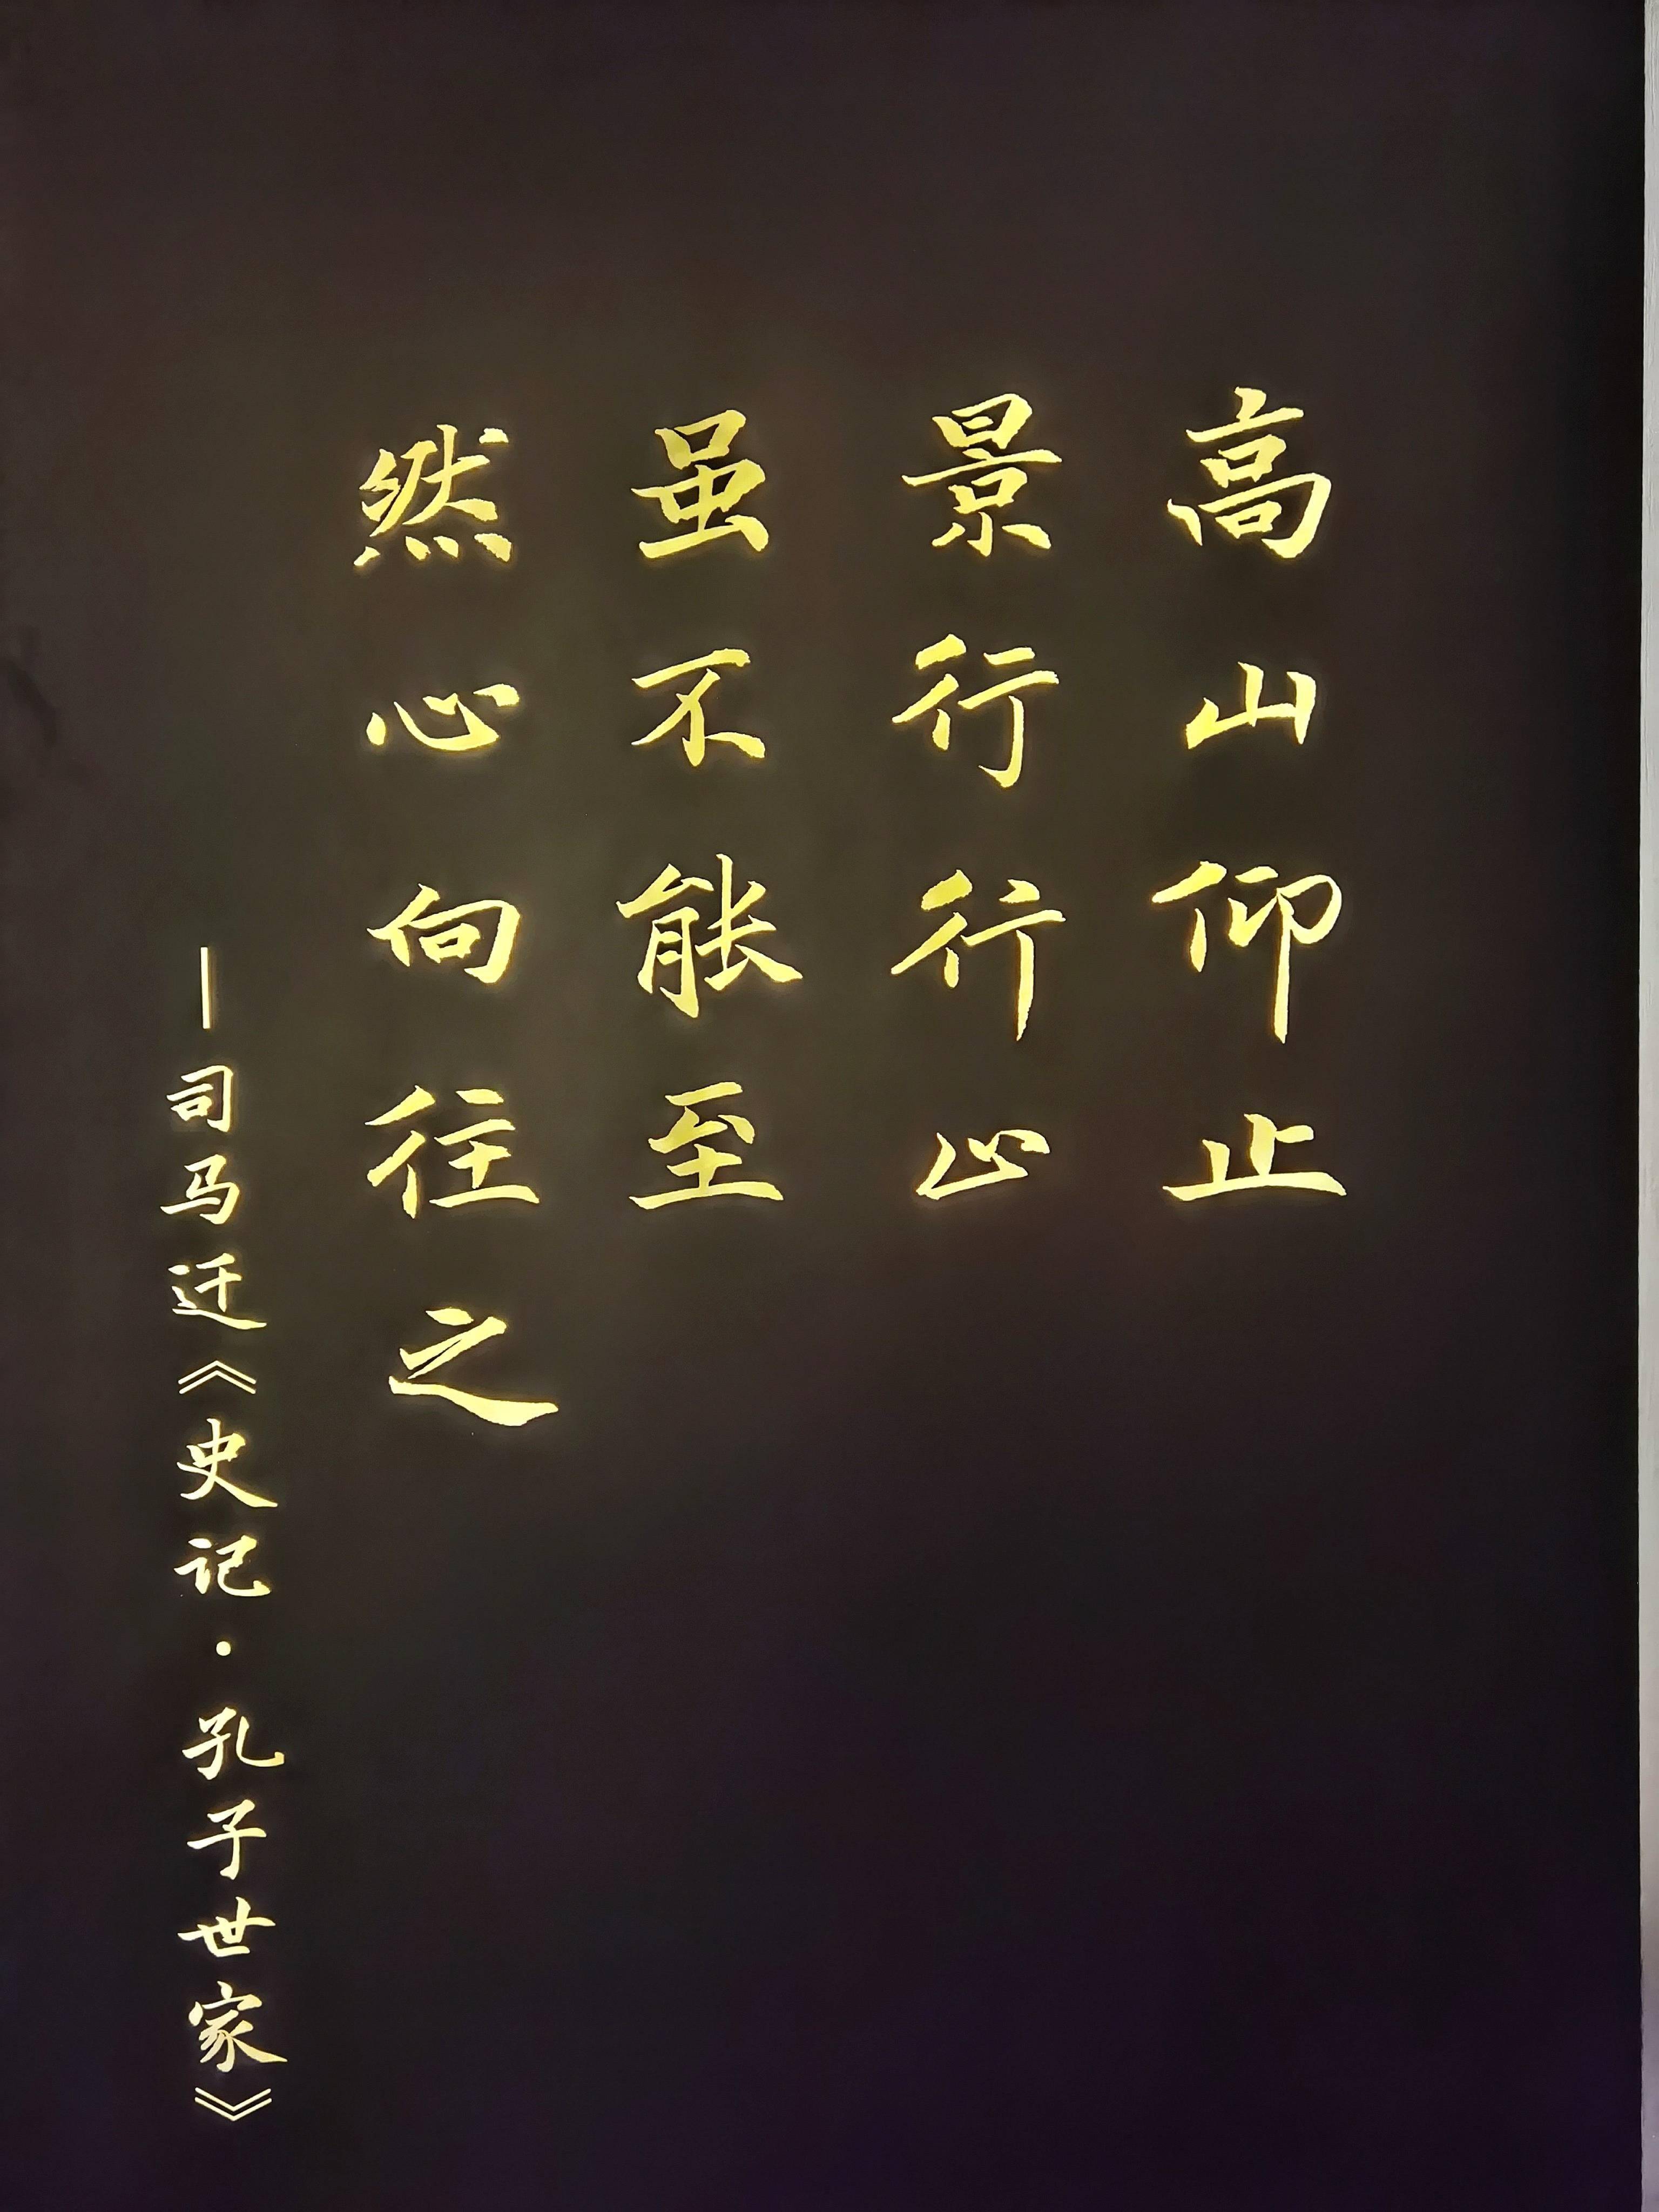 高山仰止
景行行止
虽不能至
然心向往之
—司马迁《史记·孔子世家》